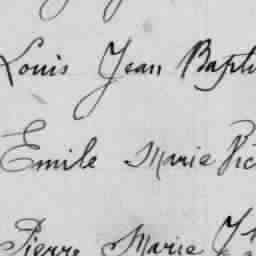 Louis Jean Bapti
Emile Marie Vic
Pierre Marie